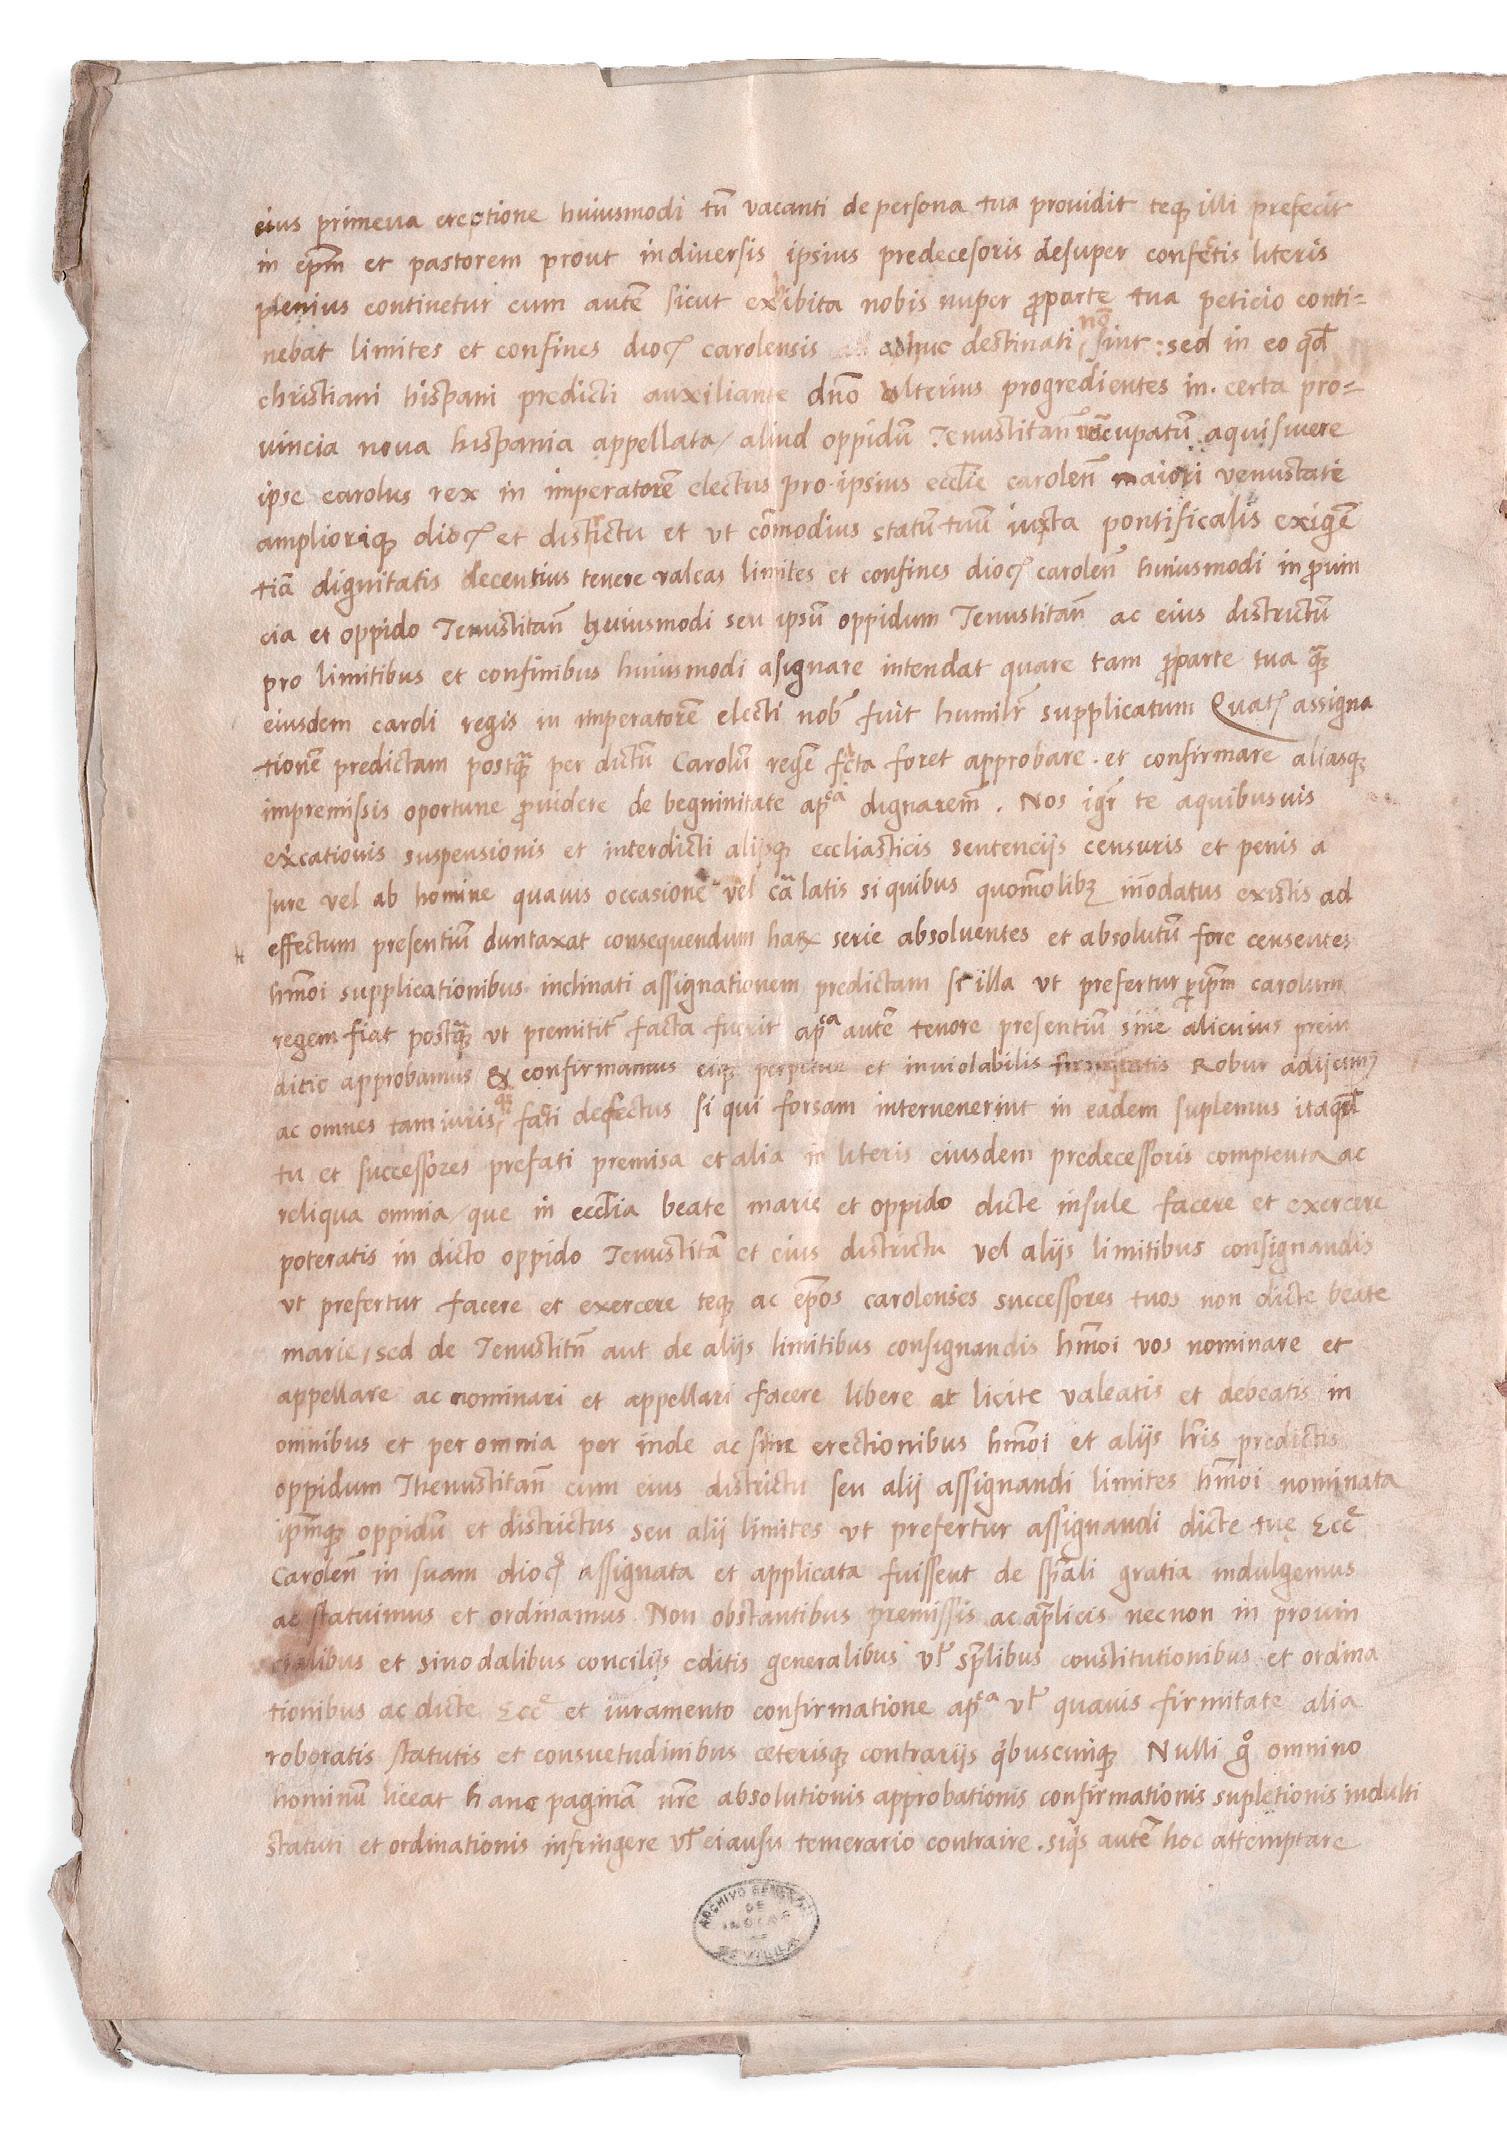 eius primeva erectione huiusmodi tũ vacanti de persona tua providit teq; illi prefecit
in ep̃m et pastorem prout indiversis ipsius predecesoris desuper confectis literis
plenius continetur cum autẽ sicut exhibita nobis nuper ꝓparte tua peticio conti=
nebat limites et confines dioc̃ carolensis adhuc destinati nõ sint: sed in eo qđ
christiani hispani predicti auxiliante dño ulterius progredientes in. certa pro=
vincia nova hispania appellata/ aliud oppidũ Tenustitañ nũcupatũ aquisivere
ipse carolus rex in imperatorẽ electus pro ipsius eccl̃ie caroleñ maiori venustate
amplioriq; dioc̃ et districtu et ut cõmodius statũ tuũ iuxta pontificalis exigẽ
tiã dignitatis decentius tenere valeas limites et confines dioc̃ caroleñ huiusmodi in ꝓvin
cia et oppido Tenustitañ huiusmodi seu ipsũ oppidum Tenustitañ ac eius districtũ
pro limitibus et confinibus huiusmodi asignare intendat quare tam ꝓparte tua q̃;
eiusdem caroli regis in imperatorẽ electi nob̃ fuit humilr̃ supplicatum Quat̃ assigna
tionẽ predictam postq̃; per dictũ Carolũ regẽ fcta foret approbare. et confirmare aliasq;
impremissis oportune ꝓvidere de begninitate ap̃ca dignarem̃. Nos igr̃ te aquibusvis
excationis suspensionis et interdicti alijsq; eccliasticis sentencijs censuris et penis a
Iure vel ab homine quavis occasione vel cã latis si quibus quomõlib; iñodatus existis ad
effectum presentiũ duntaxat consequendum harꝝ serie absolventes et absolutũ fore censentes
hm̃oi supplicationibus inclinati assignationem predictam si illa ut prefertur ꝑip̃m carolum
regem fiat postq̃; ut premititr̃ facta fuerit ap̃ca autẽ tenore presentiũ sine alicuius preiu
dicio approbamus & confirmamus eiq; perpetue et inviolabilis firmitatis Robur adijcim9
ac omnes tam iuris q̃; facti defectus si qui forsam intervenerint in eadem suplemus itaqđ
tu et successores prefati premisa et alia in literis eiusdem predecessoris comptenta ac
reliqua omnia/ que in eccl̃ia beate marie et oppido dicte insule facere et exercere
poteratis in dicto oppido Tenustitã et eius districtu vel alijs limitibus consignandis
ut prefertur facere et exercere teq; ac ep̃os carolenses successores tuos non dicte beate
marie/ sed de Tenustitñ aut de alijs limitibus consignandis hm̃oi vos nominare et
appellare ac nominari et appellari facere libere at licite valeatis et debeatis in
omnibus et per omnia per inde ac sine erectionibus hm̃oi et alijs lr̃is predictis
oppidum Thenustitañ cum eius districtu seu alij assignandi limites hm̃oi nominata
ip̃mq; oppidũ et districtus seu alij limites ut prefertur assignandi dicte tuę Eccẽ
Caroleñ in suam dioc̃ assignata et applicata fuissent de sp̃ali gratia indulgemus
ac statuimus et ordinamus Non obstantibus premissis ac ap̃licis necnon in provin
cialibus et sinodalibus concilijs editis generalibus vl̃ sp̃libus constitutionibus et ordina
tionibus ac dicte Eccẽ et iuramento confirmatione ap̃ca vl̃ quavis firmitate alia
roboratis statutis et consuetudinibus ceterisq; contrarijs q̃buscunq; Nulli g̊ omnino
hominũ liceat hanc paginã nr̃e absolutionis approbationis confirmationis supletionis indulti
statuti et ordinationis infringere vl̃ ei ausu temerario contraire. siq̃s autẽ hoc attemptare
ARCHIVO GENERAL
DE
INDIAS
SEVILLA